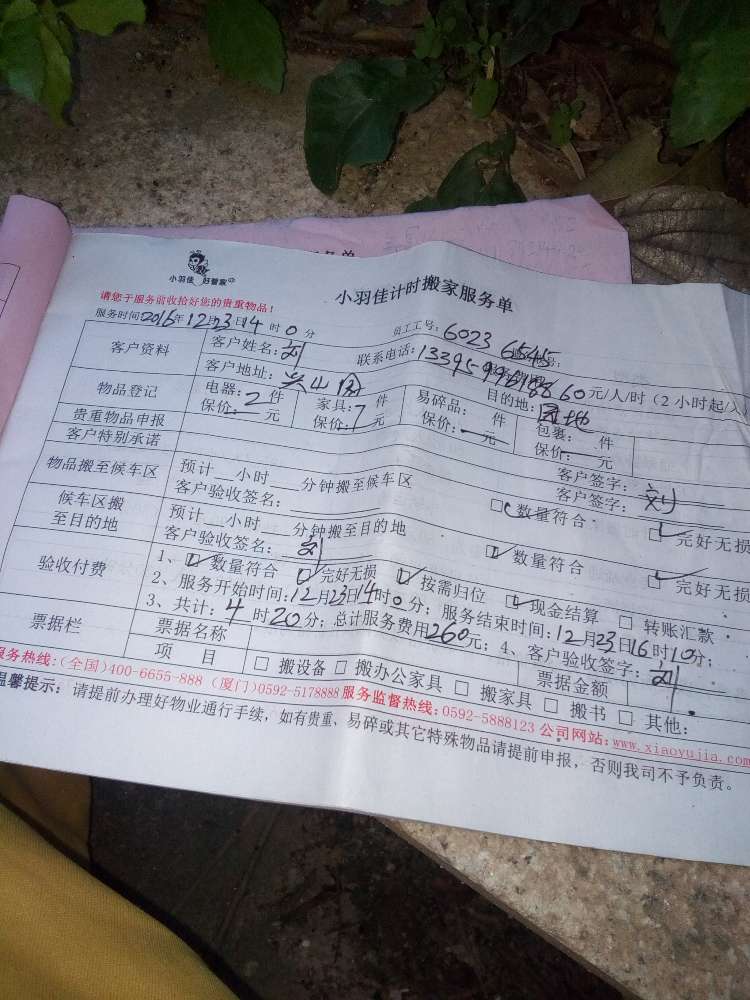 小羽佳 好管家
小羽佳计时搬家服务单
请您于服务前收拾好您的贵重物品！
服务时间2016年12月23日14时0分 员工工号：6023 6545
客户资料 客户姓名：刘 联系电话：
客户地址： 目的地： 60元/人/时（2小时起/人
物品登记 电器：2件 家具：7件 易碎品：件 包裹：件
保价：元 保价：元 保价：一元 保价：一元
贵重物品申报 客户签字：刘
客户特别承诺 客户签字：
物品搬至候车区 预计 小时 分钟搬至候车区 数量符合 完好无损
客户验收签名：
候车区搬至目的地 预计 小时 分钟搬至目的地 数量符合 完好无损
客户验收签名：刘
验收付费 1、数量符合 完好无损 按需归位 现金结算 转账汇款
2、服务开始时间：12月23日14时0分；服务结束时间：12月23日16时10分；
3、共计：4时20分；总计服务费用260元；4、客户验收签字：刘
票据栏 票据名称 票据金额
项目 搬设备 搬办公家具 搬家具 搬书 其他：
服务热线：（全国）400-6655-888（厦门）0592-5178888 服务监督热线：0592-5888123 公司网站：www.xiaoyujia.com
温馨提示：请提前办理好物业通行手续，如有贵重、易碎或其它特殊物品请提前申报，否则我司不予负责。